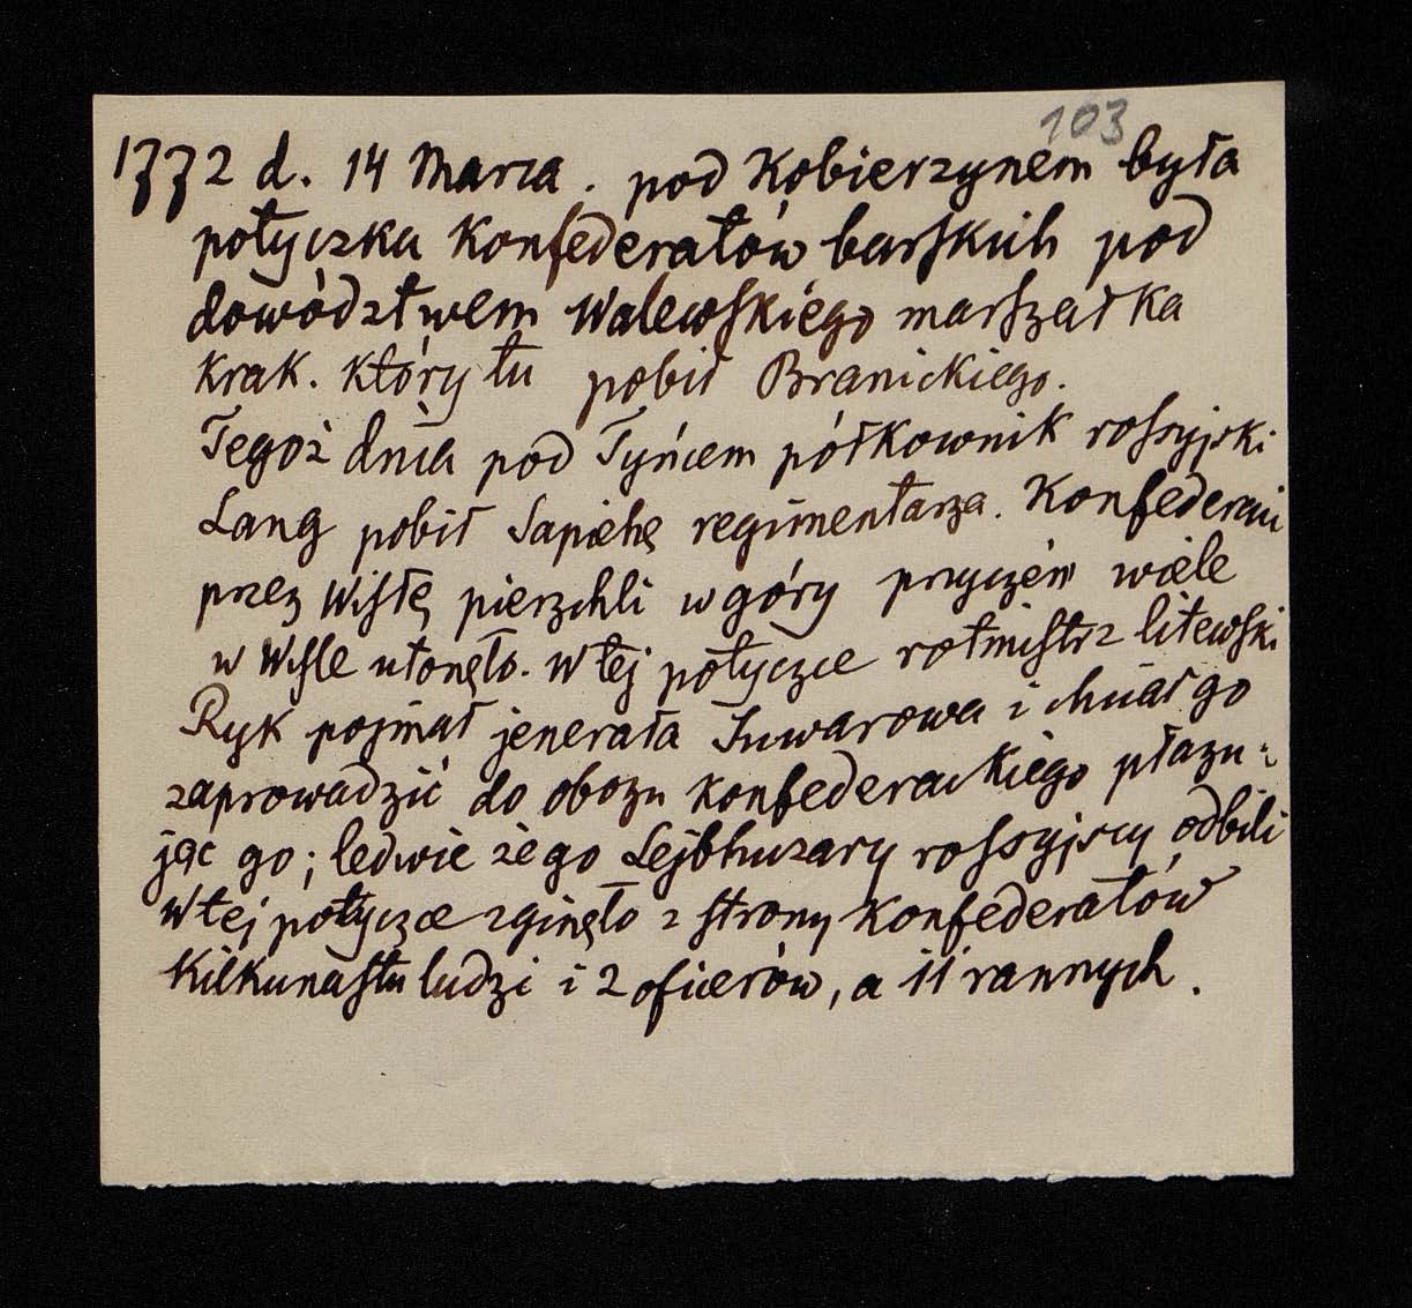 103
1772 d. 14 Marca. pod Kobierzynem była
potyczka Konfederatów barskich pod
dowództwem Walewskiego marszałka
krak. który tu pobił Branickiego.
Tegoż dnia pod Tyńcem półkownik rossyjski
Lang pobił Sapiehę regimentarza. Konfederaci
przez Wisłę pierzchli w góry przyczém wiele
w Wiśle utonęło. W tej potyczce rotmistrz litewski
Ryk pojmał jenerała Suwarowa i chciał go
zaprowadzić do obozu konfederackiego płazu-
jąc go; ledwie że go Lejbhuzary rossyjscy odbili
W tej potyczce zginęło z strony Konfederatów
Kilkunastu ludzi i 2 oficerów, a 11 rannych.